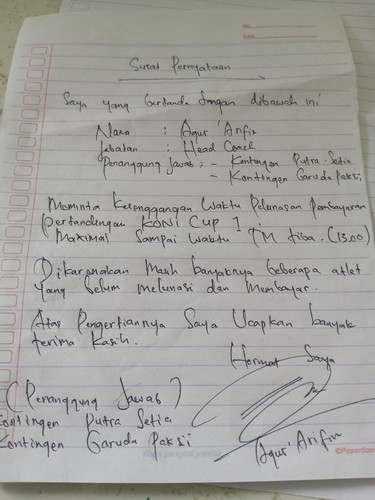 Surat Pernyataan
Saya yang bertanda tangan dibawah ini
Nama : Agur' Arifin
Jabatan : Head Coach
Penanggung jawab : - Kontingen Putra Setia
- Konttingen Garuda Paksi
Meminta kerenggangan waktu Pelunasan Pembayaran
pertandingan KONI Cup 1.
Maximal Sampai waktu TM tiba. (13.00)
Dikarenakan Masih banyaknya beberapa atlet
yang belum melunasi dan Membayar.
Atas Pengertiannya Saya Ucapkan banyak
terima kasih.
Hormat Saya
(Penanggung Jawab)
Kontingen Putra Setia
Kontingen Garuda Paksi
Agur' Arifin
PaperStar